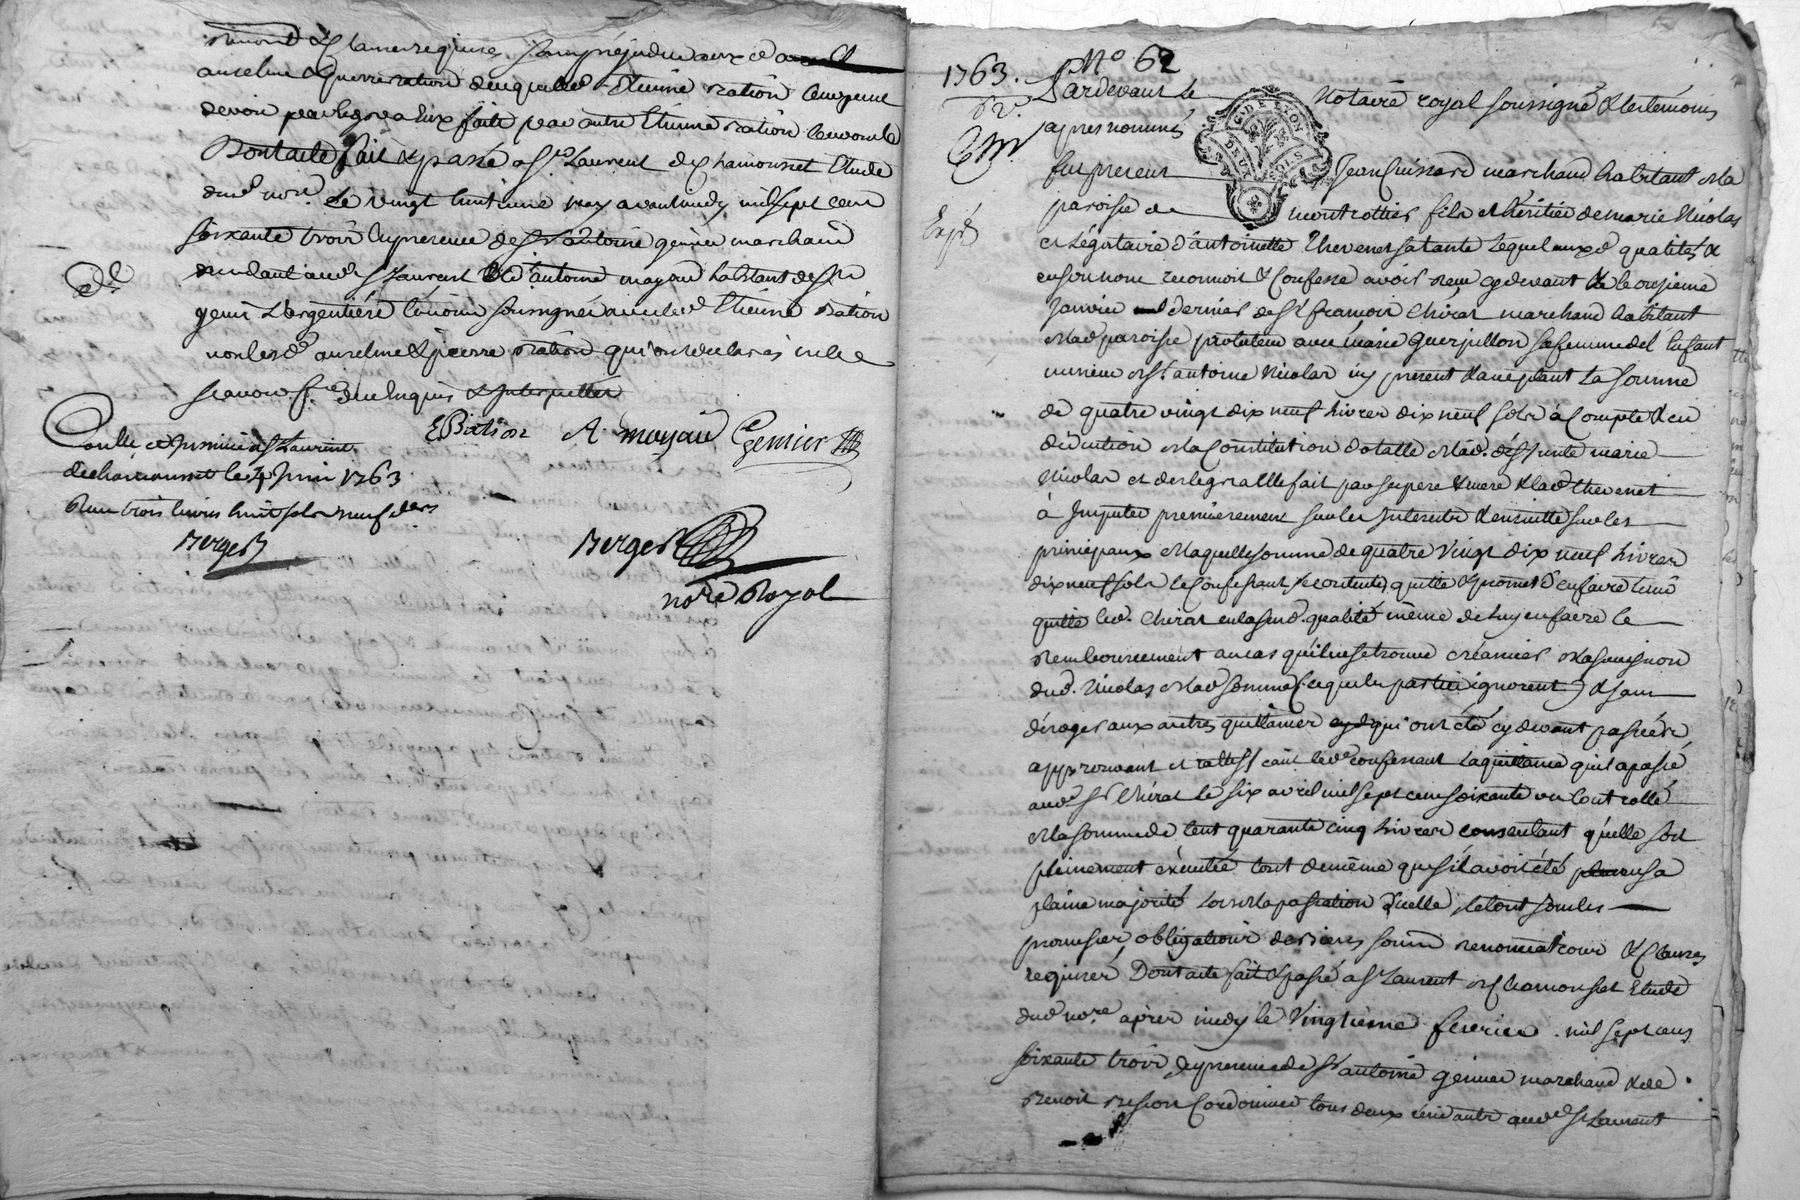 anselme & pierre ration desquelles Etienne ration
devoir par luy fait par autre Etienne ration
Dont acte fait & passé a St Laurent de Chamousset Etude
dud nore. Le vingt huitieme may avant midy mil sept cent
soixante trois En presence de Sr antoine génier marchand
residant aud St Laurent & d'antoine mayoud habitant de St
genis L'argentière témoins soussignés avec led Etienne ration
non lesd anselme & pierre ration qui ont declarés ne le
scavoir f. de ce Enquis & Interpellés
EBation A. mayoud Genier
Conllé et Insinué a St Laurent
de chamousset le 4 Juin 1763
Reçu trois livres huit sols neuf ders
Berger
Berger
nore Royal
1763. No 62
62e
Expé
Pardevant Le Notaire royal soussigné & les témoins
apres nommés
G. DE LYON
DEUX SOLS
fut present Jean Guissard marchand habitant en la
paroisse de montrottier fils et héritier de marie Nicolas
et Légataire d'antoinette Thevenet sa tante Lequel auxd qualités &
en son nom reconnoit & Confesse avoir reçu cy devant & le onzieme
Janvier dernier de Sr francois Chirat marchand habitant
en lad paroisse protuteur avec marie Guerpillon sa femme de l'enfant
mineur de Sr antoine Nicolas icy present & acceptant La somme
de quatre vingt dix neuf Livres dix neuf sols à Compte & en
déduction de la Constitution dotalle de lad. défunte marie
Nicolas et des legs a Elle fait par ses pere & mere & lad thevenet
à Imputer premierement sur les Interets & ensuitte sur les
principaux de laquelle somme de quatre vingt dix neuf Livres
dix neuf sols le Confessant se contente, quitte & promet d'en faire tenir
quitte led. Chirat en lasusd. qualité même de luy en faire le
remboursement au cas qu'il ne se trouve créancier de la succession
dud. Nicolas de lad somme (ce que les parties ignorent) & sans
déroger aux autres quittances qui ont été cy devant passées
approuvant et rattiffiant led confessant La quittance qu'il a passé
aud Sr Chirat le six avril mil sept cens soixante un Controllé
de la somme de Cent quarante cinq Livres consentant qu'elle soit
pleinement exécutée tout de même que s'il avoit été en sa
plaine majorité Lors de la passation d'icelle, le tout sous les
promesses, obligations des biens soumn renonciations & Clauses
requises Dont acte fait & passé a St Laurent de Chamousset Etude
dud nore. après midy le Vingtieme fevrier mil sept cens
soixante trois En presence de Sr antoine génier marchand & de
Benoit Besson Cordonnier tous deux résidants aud St Laurent